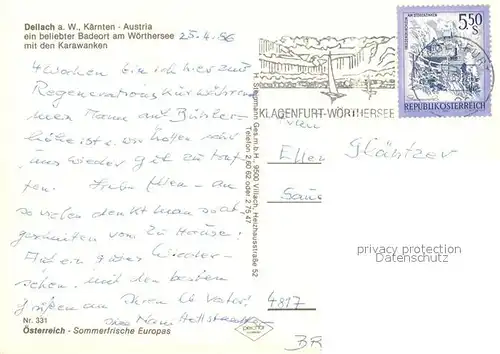 Dellach a. W., Kärnten - Austria
ein beliebter Badeort am Wörthersee 25.4.86
mit den Karawanken
4 Wochen bin ich hier zur
Regenerationskur während
mein Mann auf Bühler-
höhe ist u. wir hoffen sehr
uns wieder gut zu
ten. Liebe Ellen - an
so vielen denkt man
von zu Hause!
Auf ein gutes Wieder-
sehen und den besten
Grüßen an Ihren Lb Vater!
Ihre
Nr. 331
Österreich - Sommerfrische Europas
H. Stegmann Ges.m.b.H., 9500 Villach, Heizhausstraße 52
Telefon 2 60 62 oder 2 75 47
KLAGENFURT-WÖRTHERSEE
5,50 S
REPUBLIK ÖSTERREICH
Ellen Gläntzer
4817
privacy protection
Datenschutz